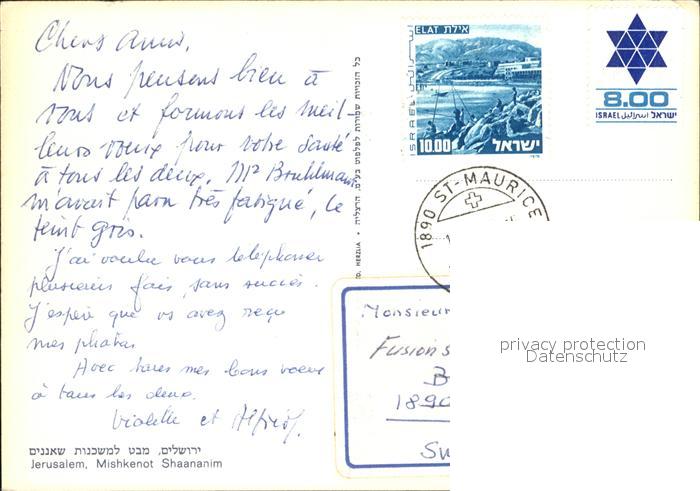 Chers Amis,
Nous pensons bien à
vous et formons les meil-
leurs voeux pour votre santé
à tous les deux. Mr Bruhlmann
m'avait paru très fatigué, le
teint gris.
J'ai voulu vous téléphoner
plusieurs fois sans succès.
J'espère que vs avez reçu
mes photos
Avec tous mes bons voeux
à tous les deux.
Violette et Alfred
ירושלים, מבט למשכנות שאננים
Jerusalem, Mishkenot Shaananim
כל הזכויות שמורות לפלפוט בע"מ, הרצליה •
D. HERZLIA
ELAT אילת
ISRAEL
10.00 ישראל
8.00
ISRAEL اسرائيل ישראל
1890 ST-MAURICE
Monsieur
Fusions
B
1890
Su
privacy protection
Datenschutz